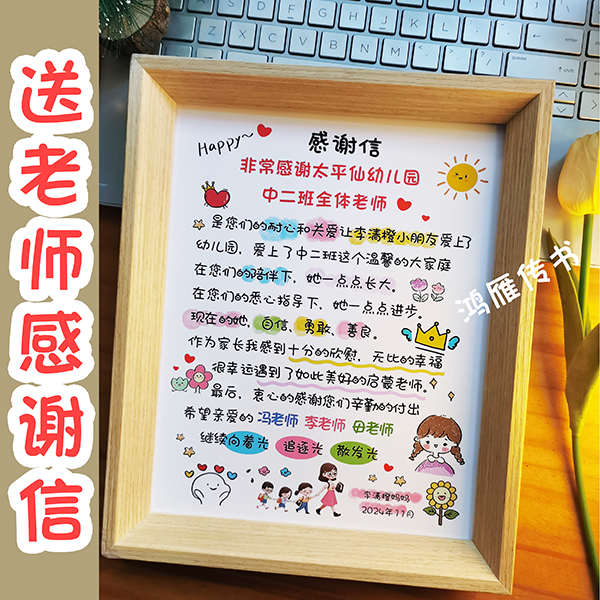 送老师感谢信
Happy~
感谢信
非常感谢太平仙幼儿园
中二班全体老师
是您们的耐心和关爱让李清橙小朋友爱上了
幼儿园，爱上了中二班这个温馨的大家庭
在您们的陪伴下，她一点点长大，
在您们的悉心指导下，她一点点进步。
现在的她，自信、勇敢、善良。
作为家长我感到十分的欣慰，无比的幸福
很幸运遇到了如此美好的启蒙老师。
最后，衷心的感谢您们辛勤的付出
希望亲爱的 冯老师 李老师 毋老师
继续向着光 追逐光 散发光
李清橙妈妈
2024年11月
鸿雁传书